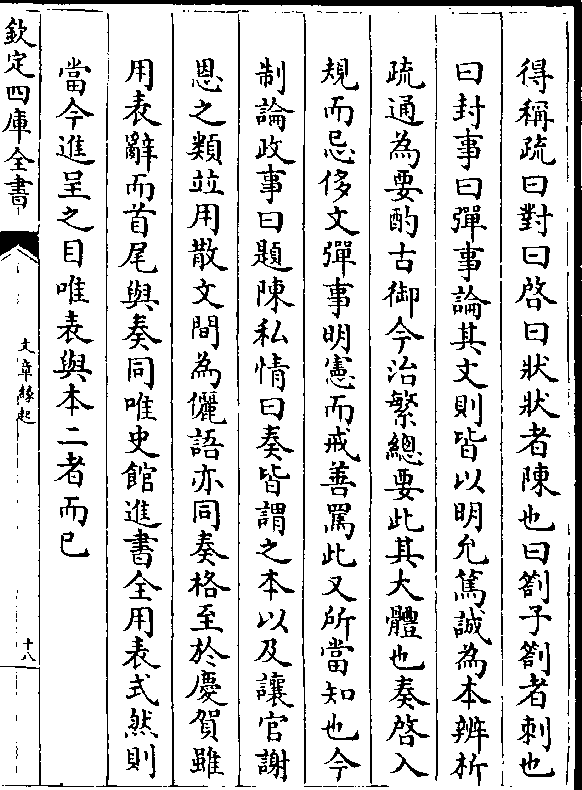 得稱疏曰對曰啓曰狀狀者陳也曰劄子劄者刺也
曰封事曰彈事論其文則皆以明允篤誠為本辨析
疏通為要酌古御今治繁總要此其大體也奏啓入
規而忌侈文彈事明憲而戒善罵此又所當知也今
制論政事曰題陳私情曰奏皆謂之本以及讓官謝
恩之類並用散文間為儷語亦同奏格至於慶賀雖
用表辭而首尾與奏同唯史館進書全用表式然則
當今進呈之目唯表與本二者而已
欽定四庫全書
文章緣起
十八